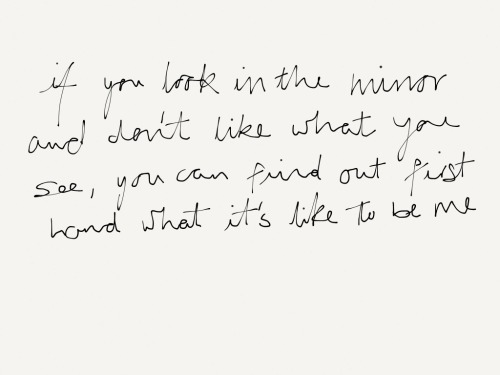 if you look in the mirror
and don't like what you
see, you can find out first
hand what it's like to be me